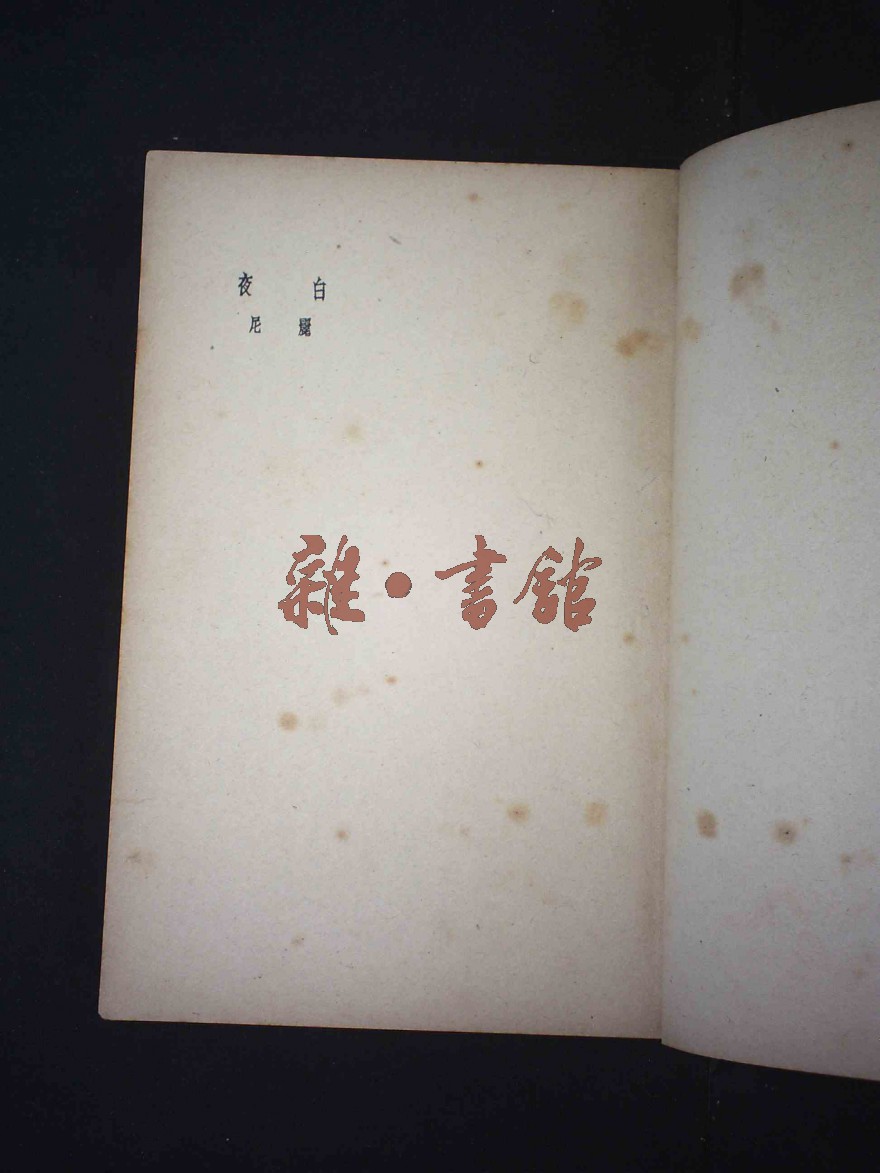 白夜
麗尼
雜·書館